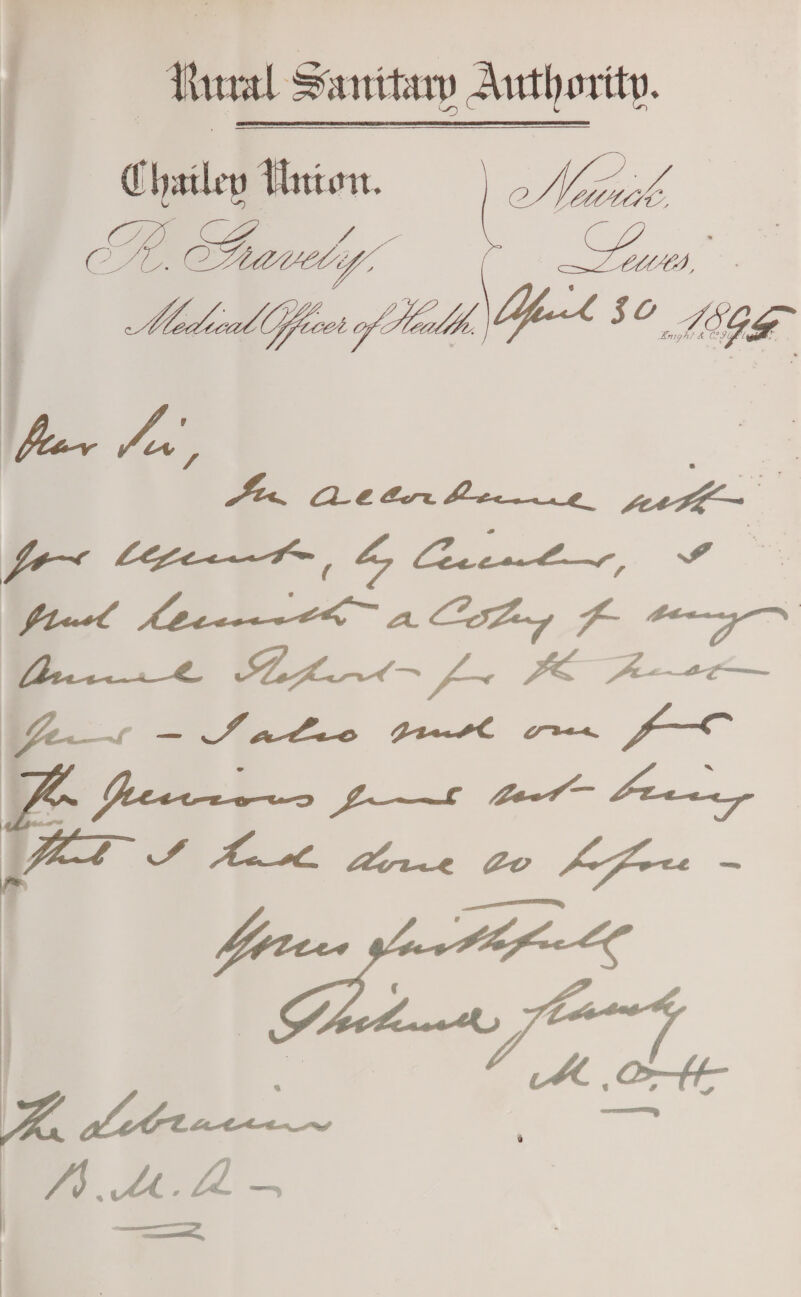 Rural Sanitary Authority.
Chailey Union.
R. Gravely,
Medical Officer of Health.
Newick,
Lewes,
April 30 189
Knight & Co
Dear Sir,
In accordance with
your request, by Circular, I
send herewith a Copy of my
Annual Report for the past
year – I also send one for
the previous year not being
that I had done so before –
Yours faithfully
Richard Gravely
M.O.H.
The Librarian
B.M.A –